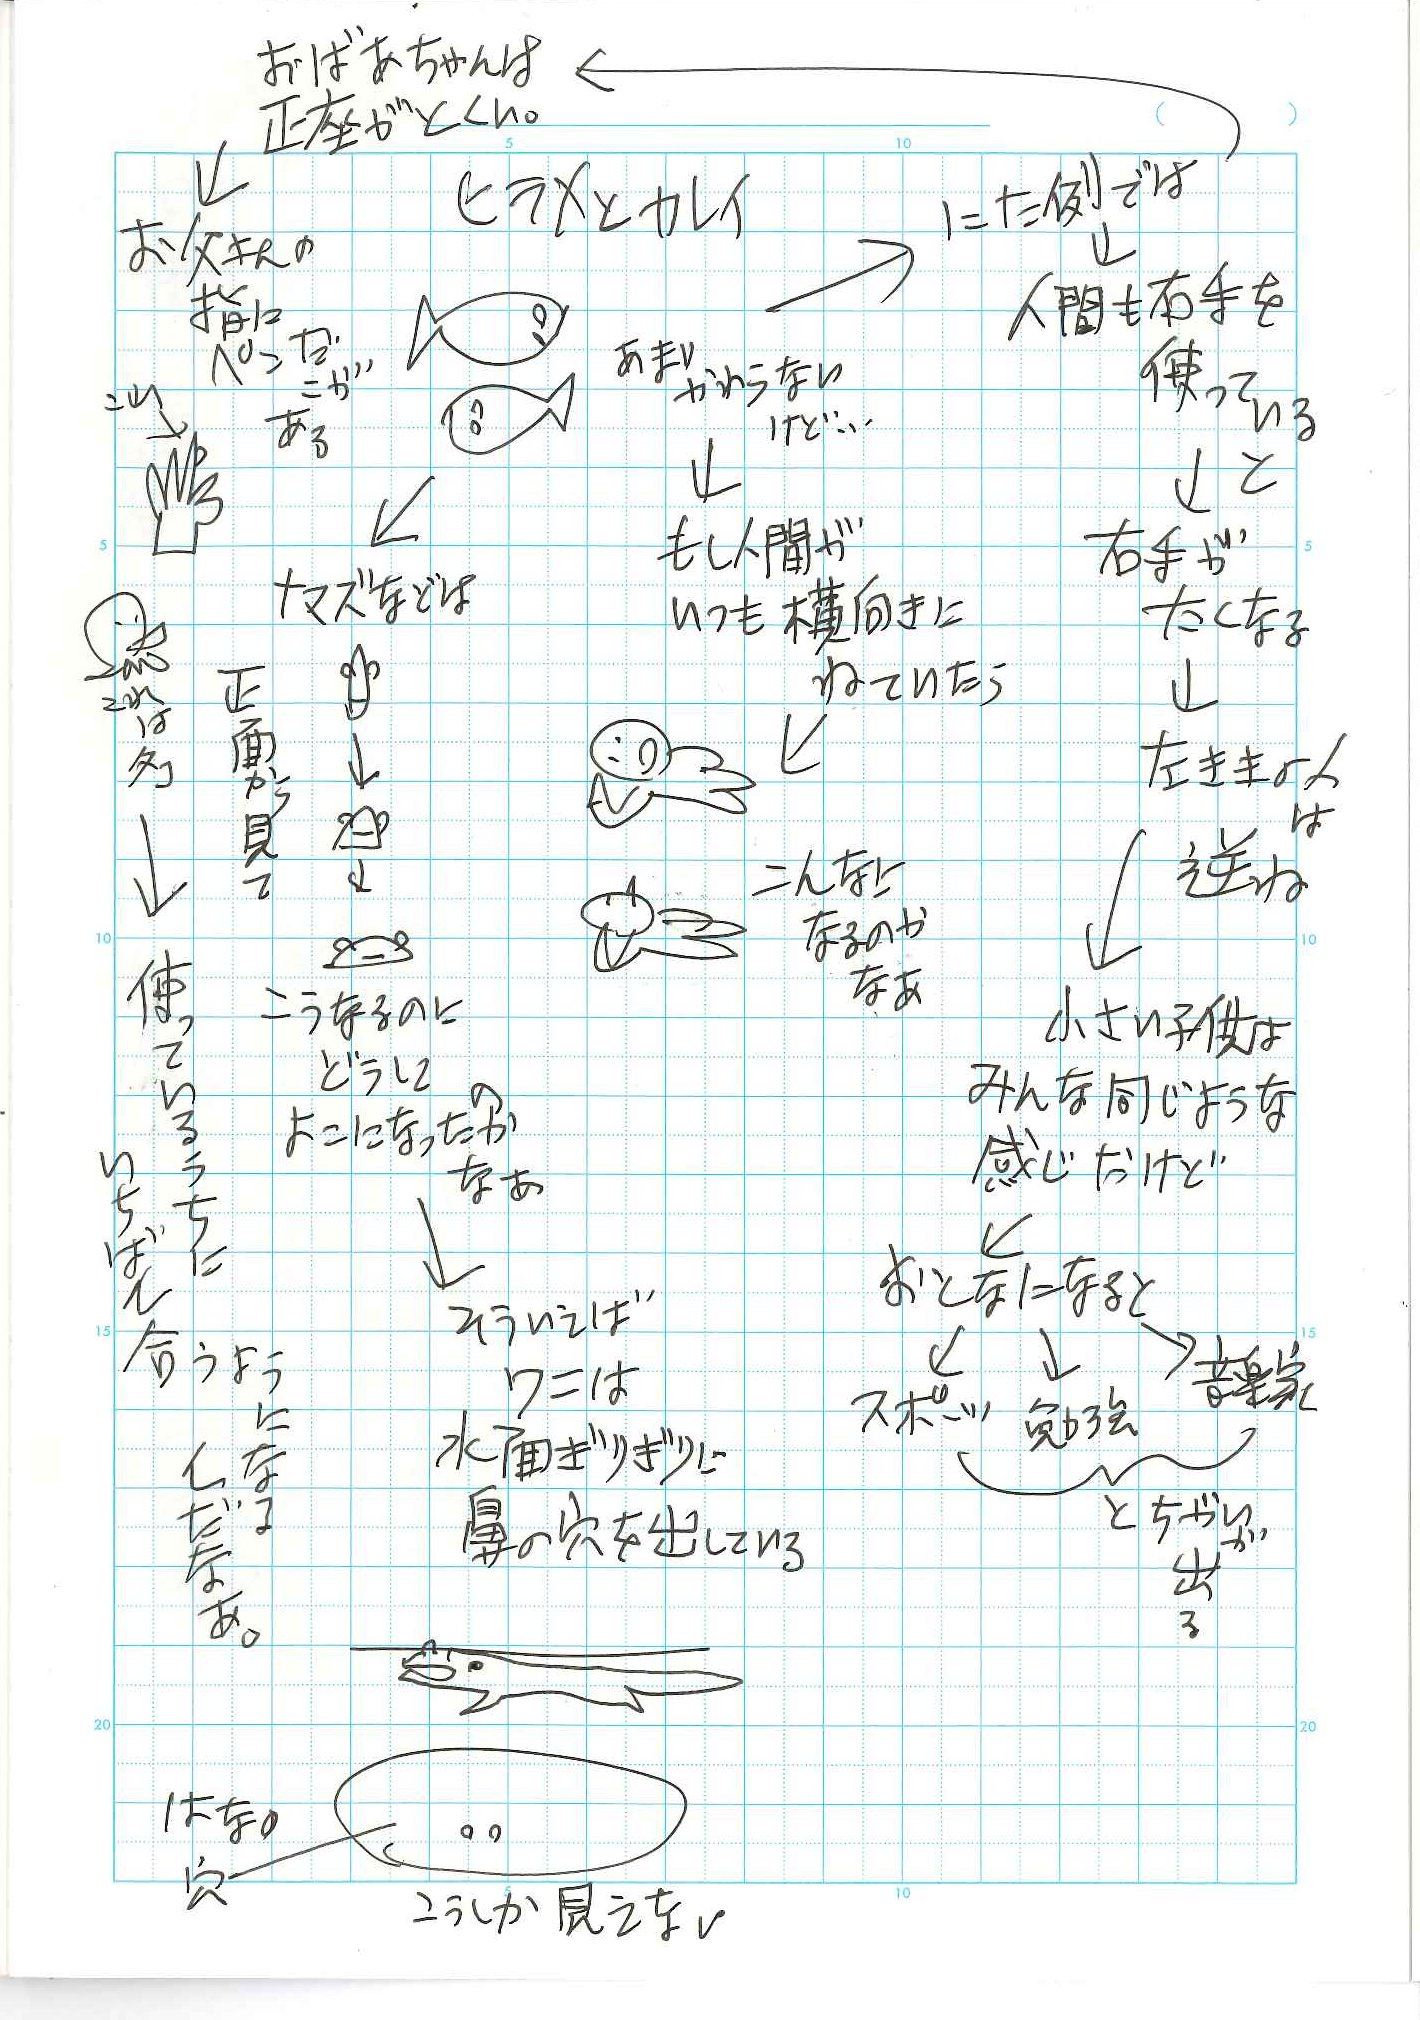 ヒラメとカレイ
あまり
かわらない
けど…
もし人間が
いつも横向きに
ねていたら
こんなに
なるのか
なあ
ナマズなどは
正面から見て
こうなるのに
どうして
よこになったのか
なあ
そういえば
ワニは
水面ぎりぎりに
鼻の穴を出している
はなの
穴
こうしか見えない
にた例では
人間も右手を
使って
いる
と
右手が
太くなる
左ききの人
は
逆ね
小さい子供は
みんな同じような
感じだけど
おとなになると
スポーツ
勉強
音楽家
とちがいが
出る
おばあちゃんは
正座がとくい。
お父さんの
指に
ペンだ
こが
ある
これ
これは
使っているうちに
いちばん合うよう
になる
んだなあ。
5
10
5
5
10
10
15
15
20
20
5
10